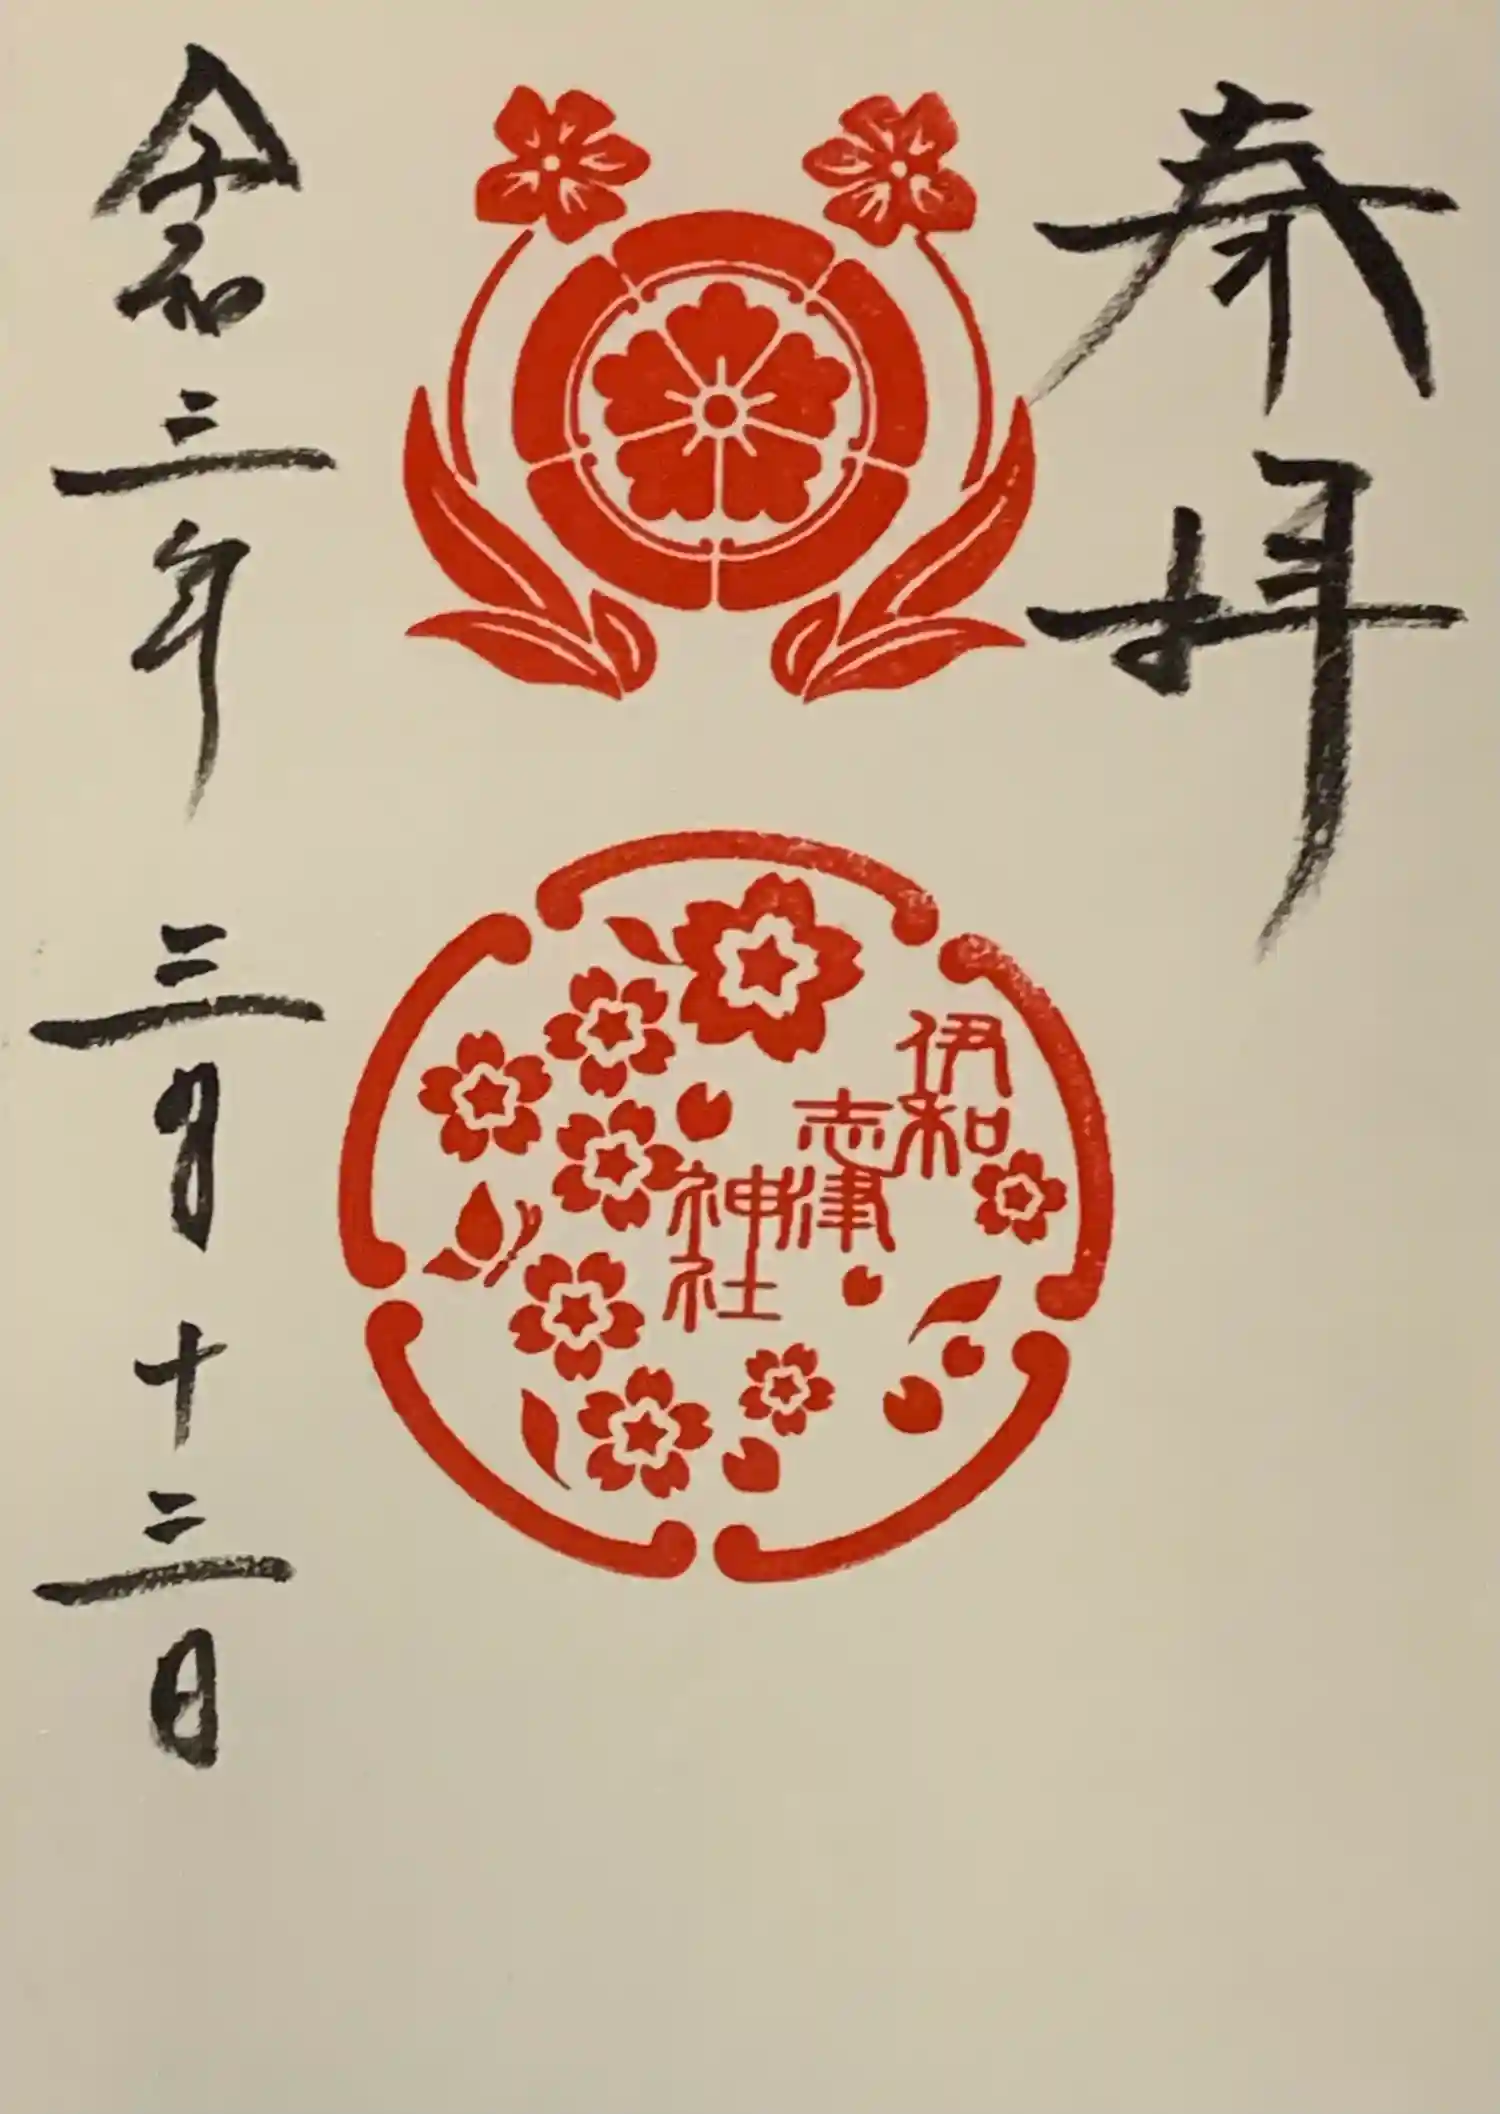 奉拝
伊和
志津
神社
令和三年三月十三日